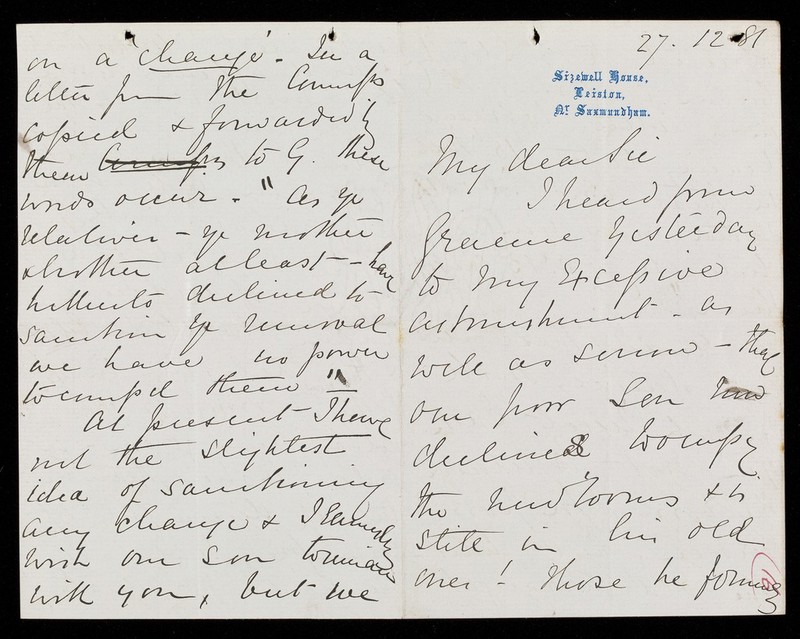 27. 12. 81
Sizewell House,
Leiston,
Nr Saxmundham.
My dear Sir
I heard from
Graeme yesterday
to my excessive
astonishment - as
well as sorrow - that
our poor Son
declines to occupy
the new rooms & is
still in his old
ones! Those he formerly
on a 'change'. In a
letter from the Commrs
copied & forwarded by
them to G. these
words occur - "As ye
relatives - ye mother
& brother at least - have
hitherto declined to
sanction ye removal
we have no power
to compel them"
At present I have
not the slightest
idea of sanctioning
any change & I earnestly
wish our son to remain
with you, but we